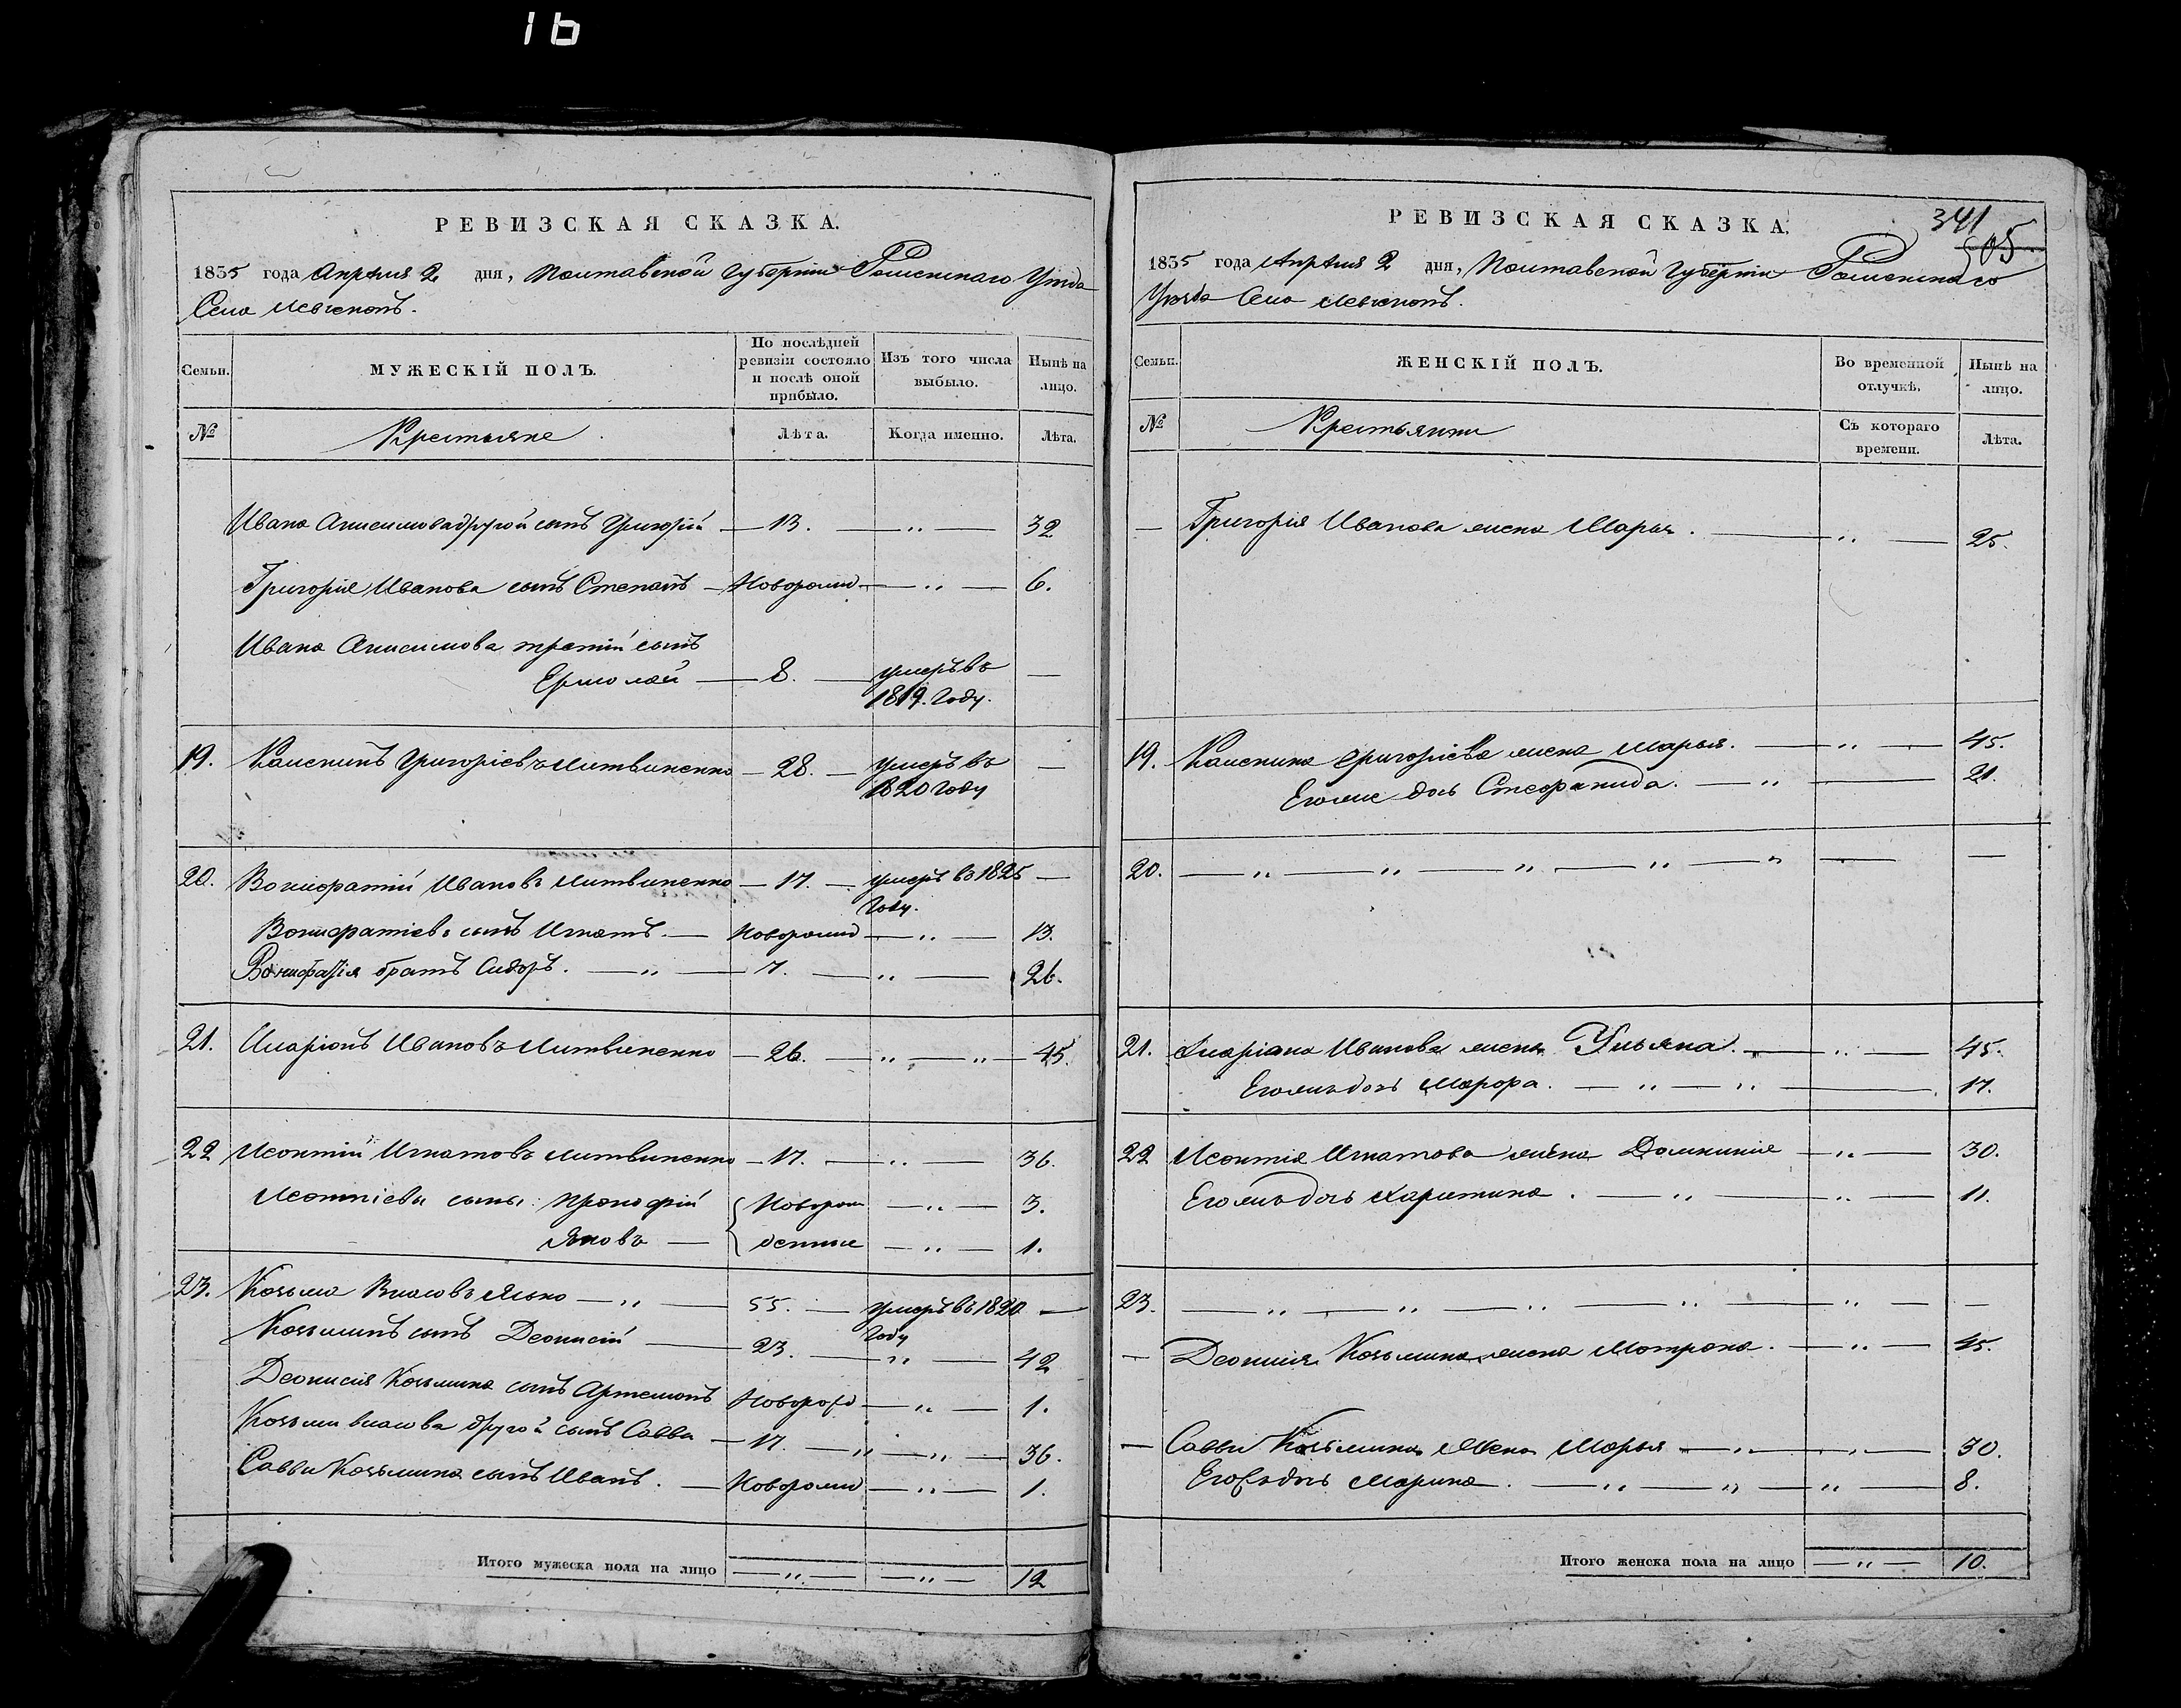 16
РЕВИЗСКАЯ СКАЗКА.
1835 года Апрѣля 2 дня, Полтавской Губерніи Роменскаго Уѣзда
Села
Семьи. МУЖЕСКІЙ ПОЛЪ. По послѣдней ревизіи состояло и послѣ оной прибыло. Изъ того числа выбыло. Нынѣ на лицо.
№ Крестьяне Лѣта. Когда именно. Лѣта.
Ивана Анисимова другой сынъ Григорій — 13. — „ — 32
Григорія Иванова сынъ Степанъ — Новорожд — „ — 6.
Ивана Анисимова третій сынъ
Ермолай — 8. — умеръ въ —
1819. Году.
19. Григоріевъ Литвиненко — 28. — умеръ въ —
1820 Году
20. Вонифатій Ивановъ Литвиненко — 17. — умеръ въ 1825 —
Году.
Вонифатіевъ сынъ Игнатъ. — Новорожд — „ — 13.
Вонифатія братъ Сидоръ. — „ — 7. — „ — 26.
21. Иларіонъ Ивановъ Литвиненко — 26. — „ — „ — 45.
22 Леонтій Игнатовъ Литвиненко — 17. — „ — 36.
Леонтіевы сыны: Прокофій {Новорож — „ — 3.
Яковъ — денные — „ — 1.
23. Козьма Власовъ — „ — 55. — Умеръ въ 1820 —
Году
Козьминъ сынъ Деонисій — 23. — „ — 42
Деонисія Козьмина сынъ Артемонъ Новорожд — „ — 1.
Козьмы Власова другой сынъ Савва — 17. — „ — „ — 36.
Саввы Козьмина сынъ Иванъ. — Новорожд — „ — 1.
Итого мужеска пола на лицо — „ — — „ — 12
РЕВИЗСКАЯ СКАЗКА.
341
505
1835 года Апрѣля 2 дня, Полтавской Губерніи Роменскаго
Уѣзда Села
Семьи. ЖЕНСКІЙ ПОЛЪ. Во временной отлучкѣ. Нынѣ на лицо.
№ Крестьянки Съ котораго времени. Лѣта.
— Григорія Иванова жена Марья. — „ — 25.
19. Григоріева жена Марья. — „ — 45.
Егоже дочь Стефанида. — „ — 21.
20. — „ — „ — „ — „ — „ — —
21. Иларіона Иванова жена Ульяна. — „ — 45.
Егожъ дочь — „ — „ — 17.
22 Леонтія Игнатова жена Домникия — „ — 30.
Егожъ дочь Харитина. — „ — „ — 11.
23. — „ — „ — „ — „ — „ — —
— Деонисія Козьмина жена Мотрона. — „ — 45.
— Саввы Козьмина Жена Марья — „ — „ — 30.
дочь Марина. — „ — „ — „ — 8.
Итого женска пола на лицо — „ — 10.